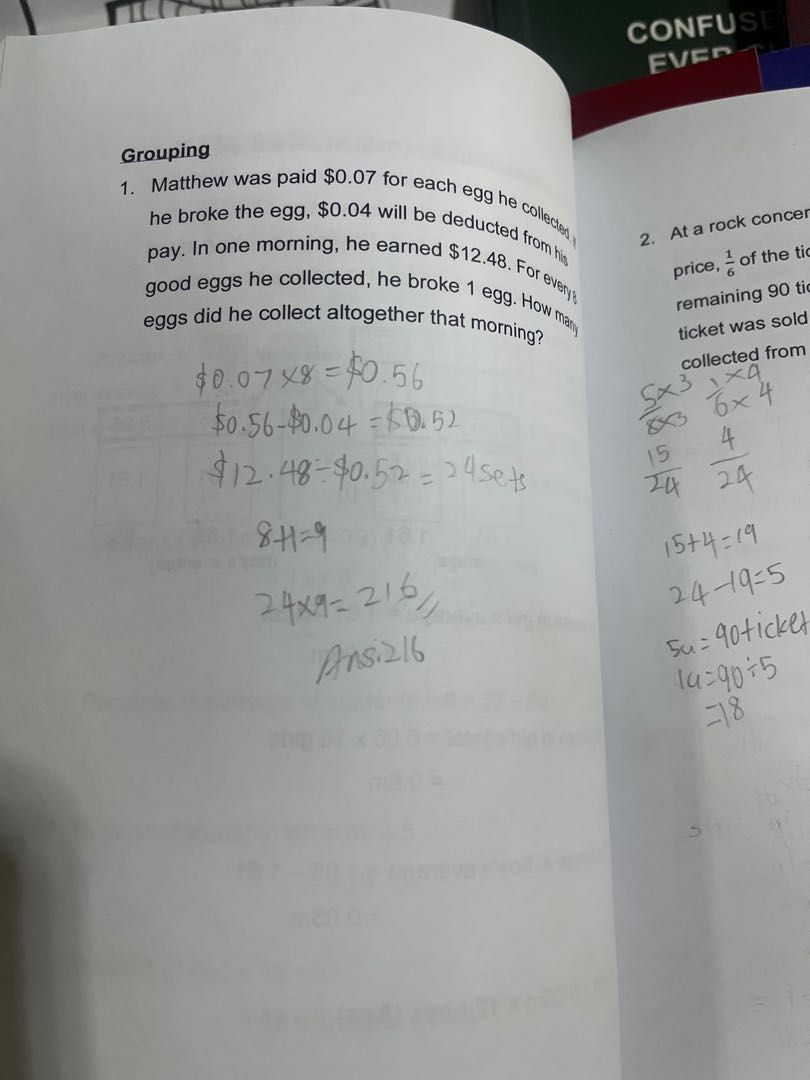 CONFUSE
EVER
Grouping
1. Matthew was paid $0.07 for each egg he collected.
he broke the egg, $0.04 will be deducted from his
pay. In one morning, he earned $12.48. For every 8
good eggs he collected, he broke 1 egg. How many
eggs did he collect altogether that morning?
$0.07x8=$0.56
$0.56-$0.04=$0.52
$12.48÷$0.52=24sets
8+1=9
24x9=216//
Ans:216
2. At a rock concer
price, 1/6 of the tic
remaining 90 tic
ticket was sold
collected from
5x3/8x3 1x4/6x4
15/24 4/24
15+4=19
24-19=5
5u=90ticket
1u=90÷5
=18